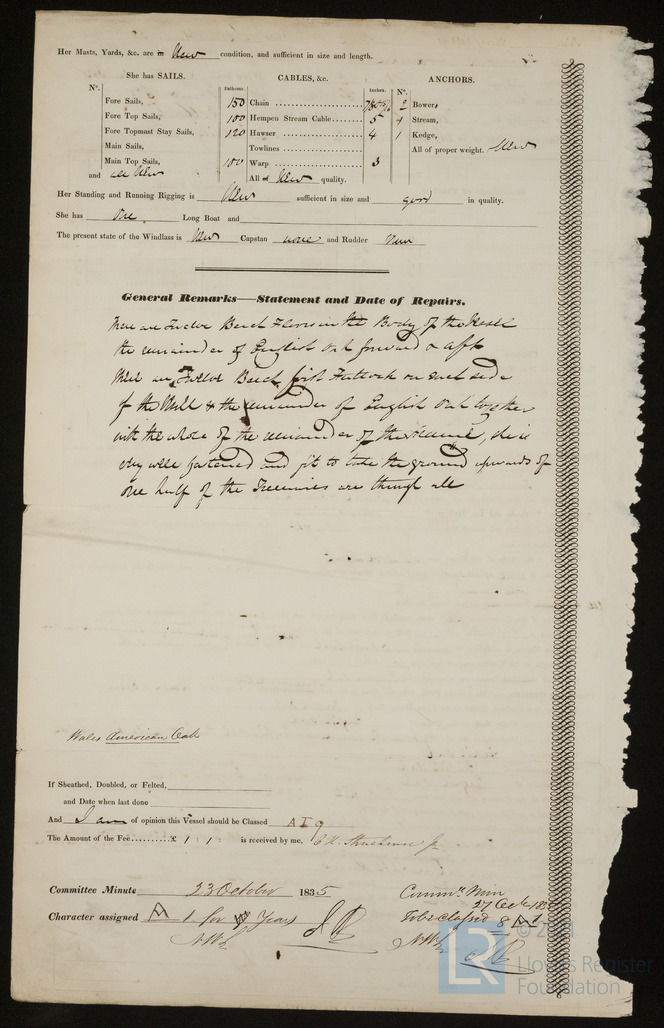 Her Masts, Yards, &c. are in New condition, and sufficient in size and length.
She has SAILS. CABLES, &c. ANCHORS.
N°. Fathoms. Inches. N°.
Fore Sails, 150 Chain 2 Bowers
Fore Top Sails, 100 Hempen Stream Cable 5 1 Stream,
Fore Topmast Stay Sails, 120 Hawser 4 1 Kedge,
Main Sails, Towlines All of proper weight. New
Main Top Sails, 100 Warp 3
and all New All of New quality.
Her Standing and Running Rigging is New sufficient in size and good in quality.
She has One Long Boat and
The present state of the Windlass is New Capstan none and Rudder New
General Remarks—Statement and Date of Repairs.
There are Twelve Beech Floors in the Body of the Vessel
the remainder of English Oak forward & aft
There are Twelve Beech first Futtocks on each side
of the & the remainder of English Oak together
with the whole of the remainder of the , she is
very well fastened and fit to take the ground upwards of
one half of the Treenails are through all
Wales American Oak
If Sheathed, Doubled, or Felted,
and Date when last done
And I am of opinion this Vessel should be Classed A I 9
The Amount of the Fee..........£ 1 1 is received by me,
Committee Minute 23 October 1835
Character assigned A 1 for Years
Comm. Min
27 Oct 1835
To be Classed 8 A 1
LR
Lloyd's Register
Foundation